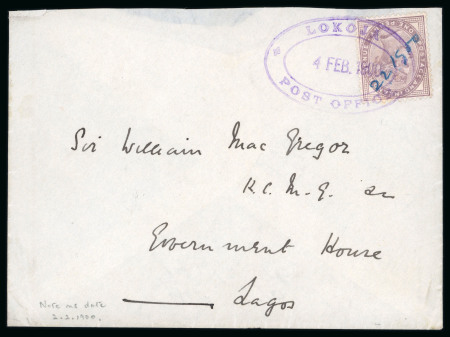 LOKOJA
4 FEB. 1900
POST OFFICE
22/5
Sir William Mac Gregor
K.C.M.G. &c
Government House
Lagos
Note me date
2.2.1900.